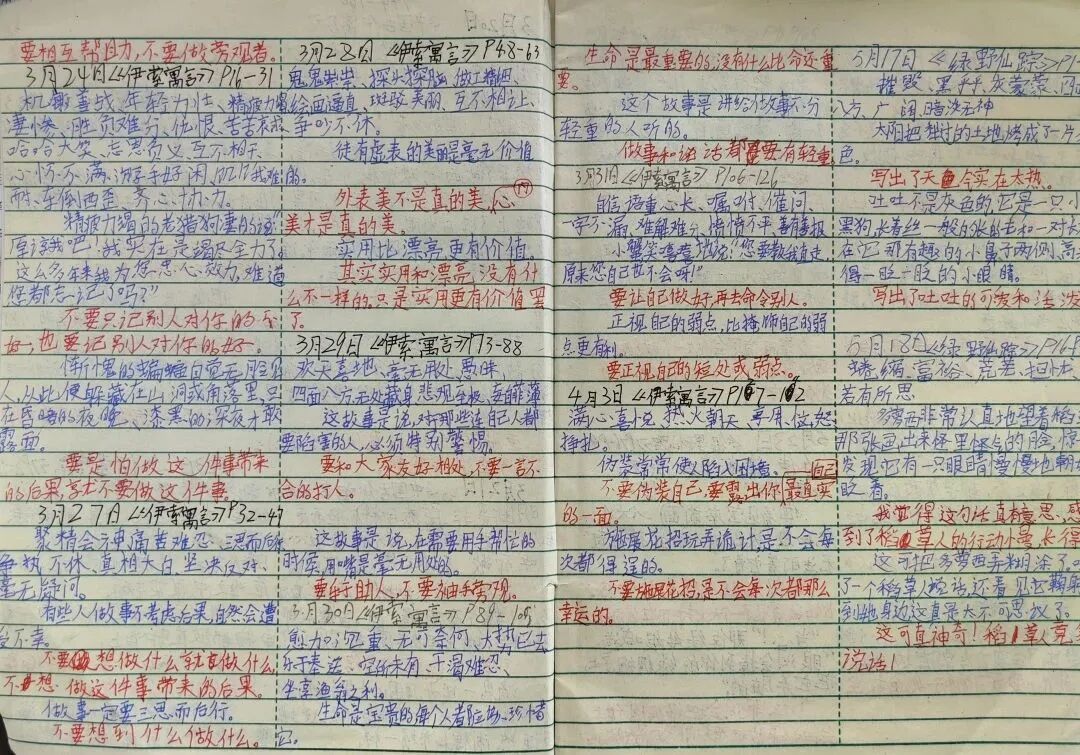 要相互帮助力,不要做旁观者。
3月24日《伊索寓言》P16-31
机敏善战、年轻力壮、精疲力竭
凄惨、胜负难分、仇恨、苦苦哀求
哈哈大笑、忘恩负义、互不相干
心怀不满、游手好闲、
耐、东倒西歪、齐心协力。
精疲力竭的老猎狗凄的说"
原谅我吧!我实在是竭尽全力了
这么多年来我为您忠心效力,难道
您都忘记了吗?"
不要只记别人对你的不
好,也要记别人对你的好。
惭愧的蝙蝠自觉无脸见
人,从此便躲藏在山洞或角落里,只
在昏暗的夜晚、漆黑的深夜才敢
露面。
要是怕做这件事带来
的后果,就不要做这件事。
3月27日《伊索寓言》P32-47
聚精会神、痛苦难忍、三思而后
争执不休、真相大白、坚决反对、
毫无疑问。
有些人做事不考虑后果,自然会遭
不幸。
不要想做什么就做什么
不想做这件事带来的后果。
做事一定要三思而后行。
不要想到什么做什么。
3月28日《伊索寓言》P48-63
鬼鬼祟祟、探头探脑、做工精细、
绘画逼真、斑驳美丽、互不相让、
争吵不休。
徒有虚表的美丽是毫无价值
的。
外表美不是真的美,心
美才是真的美。
实用比漂亮更有价值。
其实实用和漂亮,没有什
么不一样的,只是实用更有价值罢
了。
3月29日《伊索寓言》P73-88
欢天喜地、毫无用处、愚昧
四面八方、无处藏身、悲观
这故事是说,对那些连自己人都
要陷害的人,必须特别警惕。
要和大家友好相处,不要一言不
合的打人。
这故事是说,在需要用手帮忙的
时候,用嘴是毫无用处的。
要乐于助人,不要袖手旁观。
3月30日《伊索寓言》P89-105
愈加沉重、无可奈何、大势已去
乐于奉达、空所未有、干渴难忍、
坐享渔翁之利。
生命是宝贵的每个人都应当珍惜
它。
生命是最重要的,没有什么比命还重
要。
这个故事是讲给做事不分
轻重的人听的。
做事和说话都是要有轻重
3月31日《伊索寓言》P106-126
自信、语重心长、嘱咐、催问、
一字不漏、难解难分、愤愤不平、善有善报
小蟹笑嘻嘻地说:"您要教我直走,
原来您自己也不会呀!"
要让自己做好,再去命令别人。
正视自己的弱点,比掩饰自己的弱
点更有利。
要正视自己的短处或弱点。
4月3日《伊索寓言》
满心喜悦、热火朝天、享用、
挣扎。
伪装常常使人陷入困境。
不要伪装自己,要露出你自己最真实
的一面。
施展花招玩弄诡计,是不会每
次都得逞的。
不要施展花招,是不会每次都那么
幸运的。
5月17日《绿野仙踪》P1-
摧毁、黑乎乎、灰蒙蒙、四
八方、广阔、暗淡无神
太阳把耕过的土地烤成了一片
色。
写出了天气实在太热。
吐吐不是灰色的,它是一只小
黑狗,长着丝一般的长的毛和一对
在它那有趣的小鼻子两侧,高
得一眨一眨的小眼睛。
写出了吐吐的可爱和活泼
5月18日《绿野仙踪》P16
蜷缩、富裕、荒芜、担忧、
若有所思
多萝西非常认真地望着稻
那张画出来怪里怪气的脸,惊
发现它有一只眼睛慢慢地朝
眨着。
我觉得这句话真有意思,感
到了稻草人的行动慢长得
这可把多萝西弄糊涂了。
了一个稻草人说话,还看见它鞠躬
到她身边,这真是太不可思议了。
这可真神奇!稻草人竟
说话!